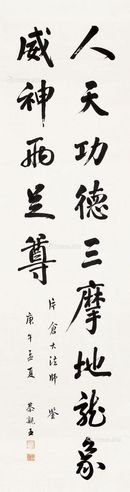 人天功德三摩地龍象
威神兩足尊
片倉大法師 鑒
庚午孟夏
恭親王